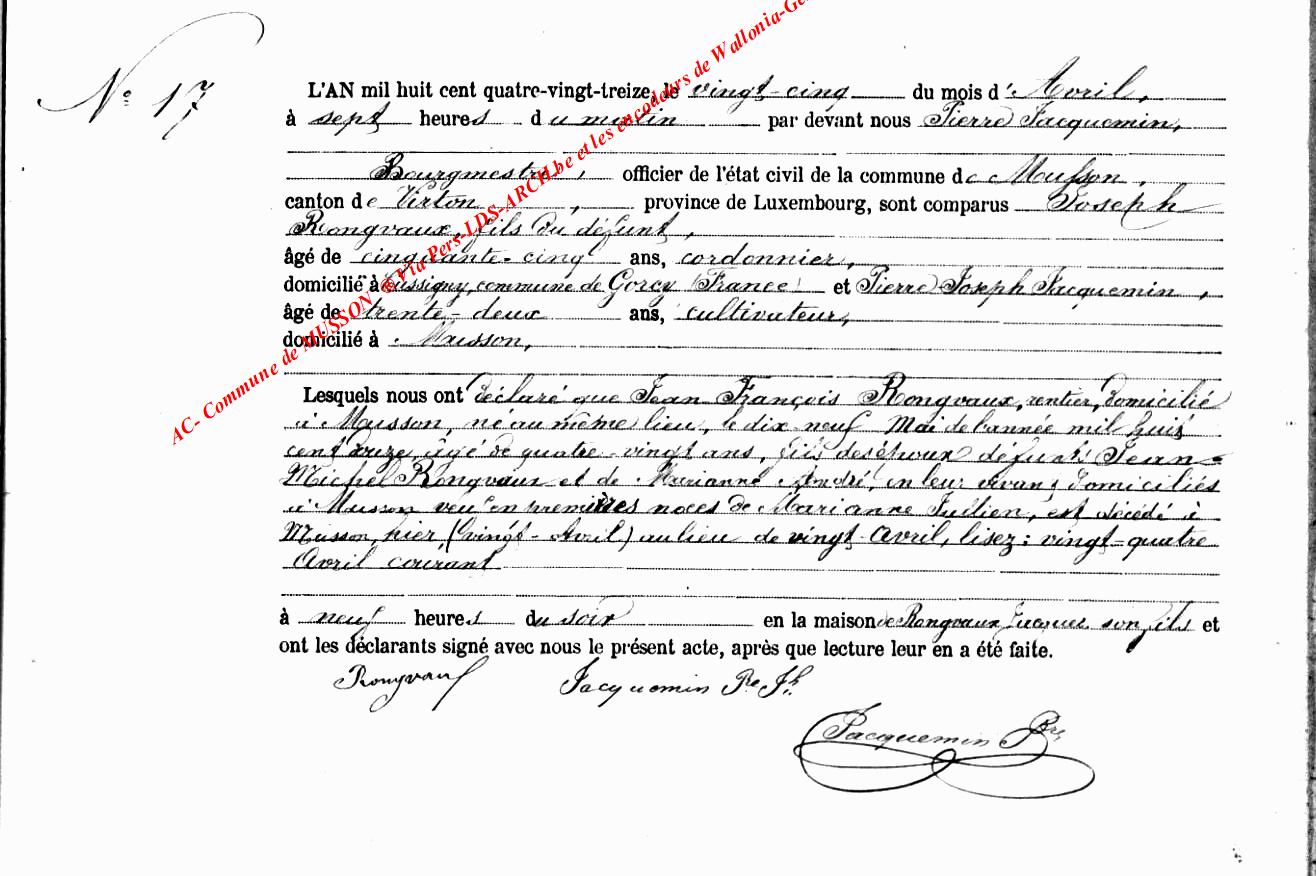 N° 17
L'AN mil huit cent quatre-vingt-treize, le vingt-cinq du mois d' Avril,
à sept heures du matin par devant nous Pierre Jacquemin,
Bourgmestre, officier de l'état civil de la commune de Musson,
canton de Virton, province de Luxembourg, sont comparus Joseph
Rongvaux, fils du défunt,
âgé de cinquante-cinq ans, cordonnier,
domicilié à Cussigny, commune de Gorcy (France) et Pierre Joseph Jacquemin,
âgé de trente-deux ans, cultivateur,
domicilié à Musson,
Lesquels nous ont déclaré que Jean François Rongvaux, rentier, domicilié
à Musson, né au même lieu, le dix neuf Mai de l'année mil huit
cent âgé de quatre-vingt ans, fils des époux défunts Jean-
Michel Rongvaux et de Marianne André, en leur vivant domiciliés
à Musson veuf en premières noces de Marianne Jullien, est décédé à
Musson, hier (vingt-Avril) au lieu de vingt Avril, lisez: vingt-quatre
Avril courant
à neuf heures du soir en la maison de Rongvaux Jacques son fils et
ont les déclarants signé avec nous le présent acte, après que lecture leur en a été faite.
Rongvaux Jacquemin Pre Jh
Jacquemin Pre
AC- Commune de MUSSON ® Via Pers-LDS-ARCH.be et les encodeurs de Wallonia-Ge